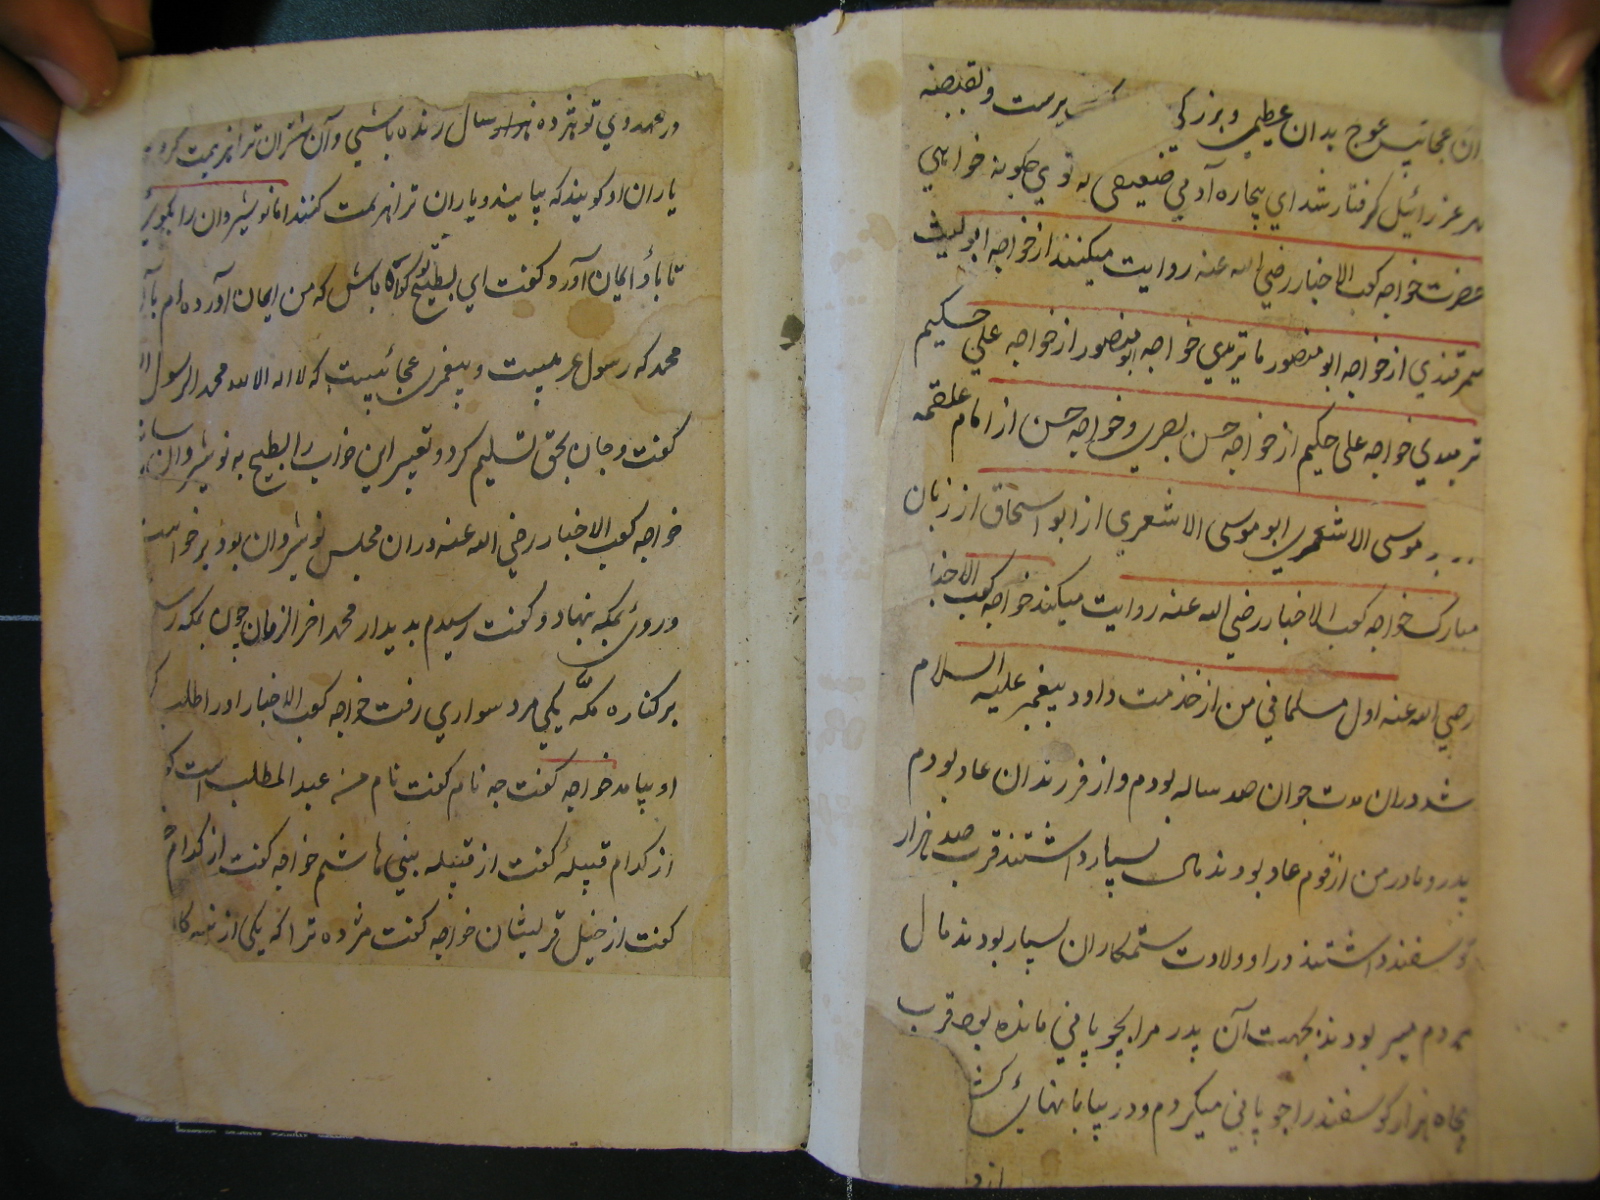 ان عجائب عوج بدان عظیمی و بزرگی پرست و بقبضه
عزرائیل کرفتار شد ای بیچاره آدمی ضعیفی به قوی چکونه خواهی
حضرت خواجه کعب الاخبار رضی الله عنه روایت میکنند از خواجه ابولیث
سمرقندی از خواجه ابو منصور ماتریدی خواجه ابو منصور از خواجه علی حکیم
ترمیدی خواجه علی حکیم از خواجه حسن بصری و خواجه حسن از امام علقمه
موسی الاشعری ابو موسی الاشعری از ابو اسحاق از زبان
مبارک خواجه کعب الاخبار رضی الله عنه روایت میکند خواجه کعب الاخبا
رضی الله عنه اول مسلمانی من از خذمت داود پیغمبر علیه السلام
شد دران مدت جوان صد ساله بودم و از فرزندان عاد بودم
پدر و مادر من از قوم عاد بودند مال بسیار داشتند قرب صد هزار
کوسفند داشتند در او ولادت ستمکاران بسیار بودند مال
مردم میبر بودند بجهت آن پدر مرا بچوپانی مانده بود قرب
پنجاه هزار کوسفند را چوپانی میکردم و در بیابانهای
از د
در عهد وی تو هژده هزار سال زنده باشی و آن شتران ترا هزیمت کرد
یاران او کویند که بیایند و یاران ترا هزیمت کنند اما نوشیروان را بکوی
تا باو ایمان آورد و کفت ای بطیح تو کواه باش که من ایمان آورده ام با
محمد که رسول عربیست و پیغمبر عجائبیست که لا اله الا الله محمد الرسول ال
کفت و جان بحق تسلیم کرد و تعبیر این خواب را بطیح به نوشیروان
خواجه کعب الاخبار رضی الله عنه دران مجلس نوشیروان بود برخواست
و روی بمکه نهاد و کفت رسیدم بدیدار محمد اخر الزمان چون بمکه رس
بر کناره مکه یکی مرد سواری رفت خواجه کعب الاخبار او را طلب
او بیامد خواجه کفت چه نام کفت نام من عبد المطلب است
از کدام قبیلهٔ کفت از قبیله بنی هاشم خواجه کفت از کدام
کفت از خیل قریشان خواجه کفت مژده ترا که یکی از